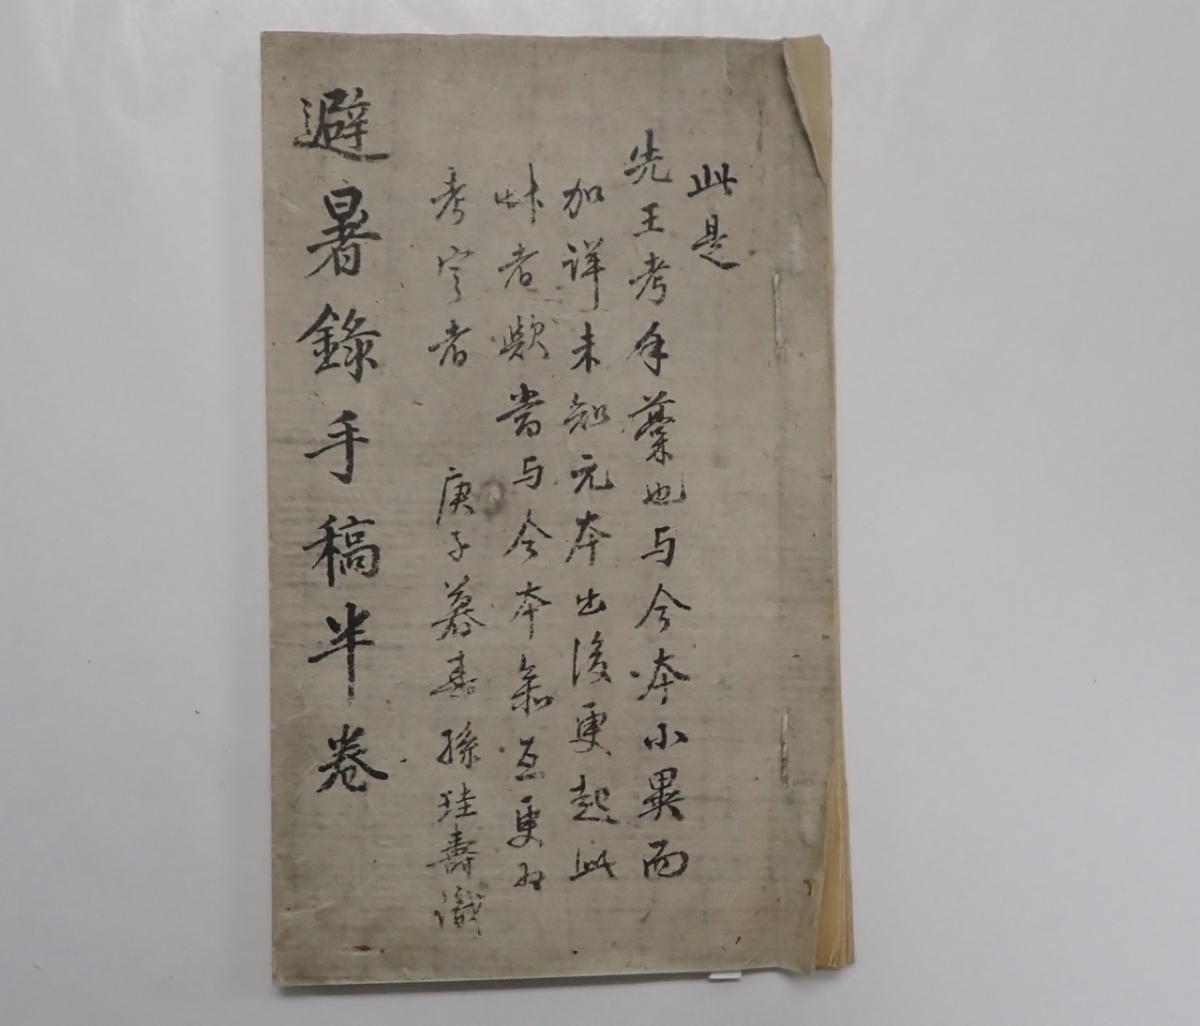 此是
先王考手藁也与今夲小異而
加詳未知元夲出後更起此
艸者歟當与今夲叅互更
考定者　庚子暮春孫珪壽識
避暑錄手稿半卷